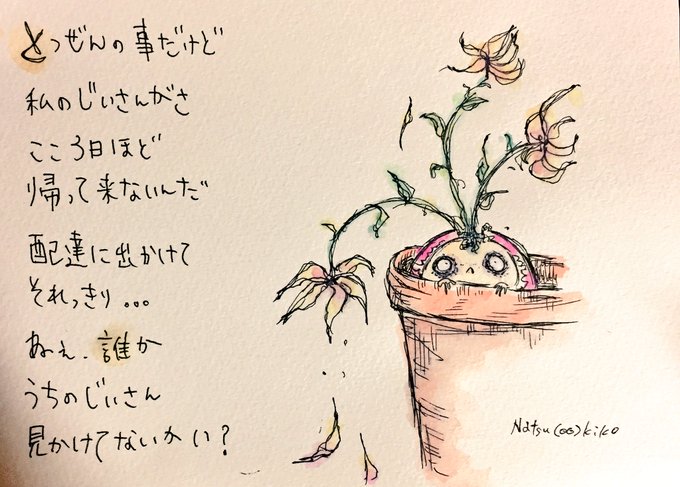 とつぜんの事だけど
私のじいさんがさ
ここ3日ほど
帰って来ないんだ
配達に出かけて
それっきり...
ねぇ、誰か
うちのじいさん
見かけてないかい?
Natsu(oo)kiko